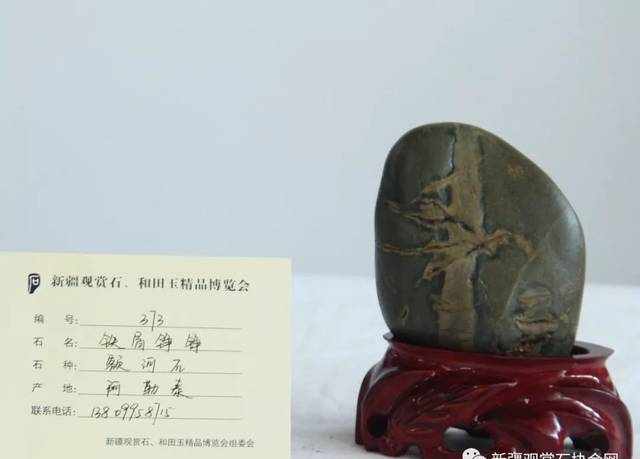 新疆观赏石、和田玉精品博览会
编号： 373
石名： 铁骨铮铮
石种： 额河石
产地： 阿勒泰
联系电话：
新疆观赏石、和田玉精品博览会组委会
新疆观赏石协会网